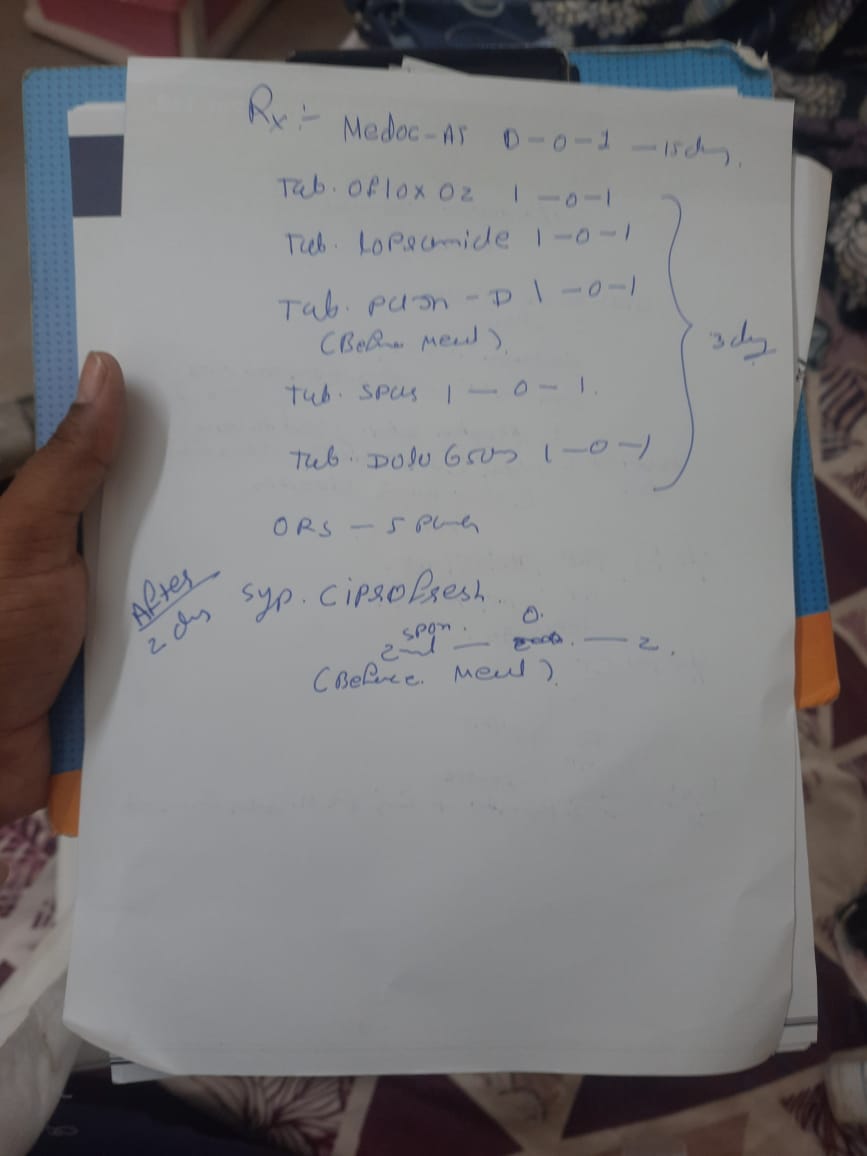 Rx :-
Medoc-AS 0-0-1 - 15 day.
Tab. Oflox Oz 1-0-1
Tab. Lopramide 1-0-1
Tab. - D 1-0-1
(Before Meal)
3 day
Tab. Spas 1-0-1.
Tab. Dolo 650 1-0-1
ORS - 5
After
2 days
Syp. Ciprofresh.
spon. 0.
2 - - 2.
(Before Meal)